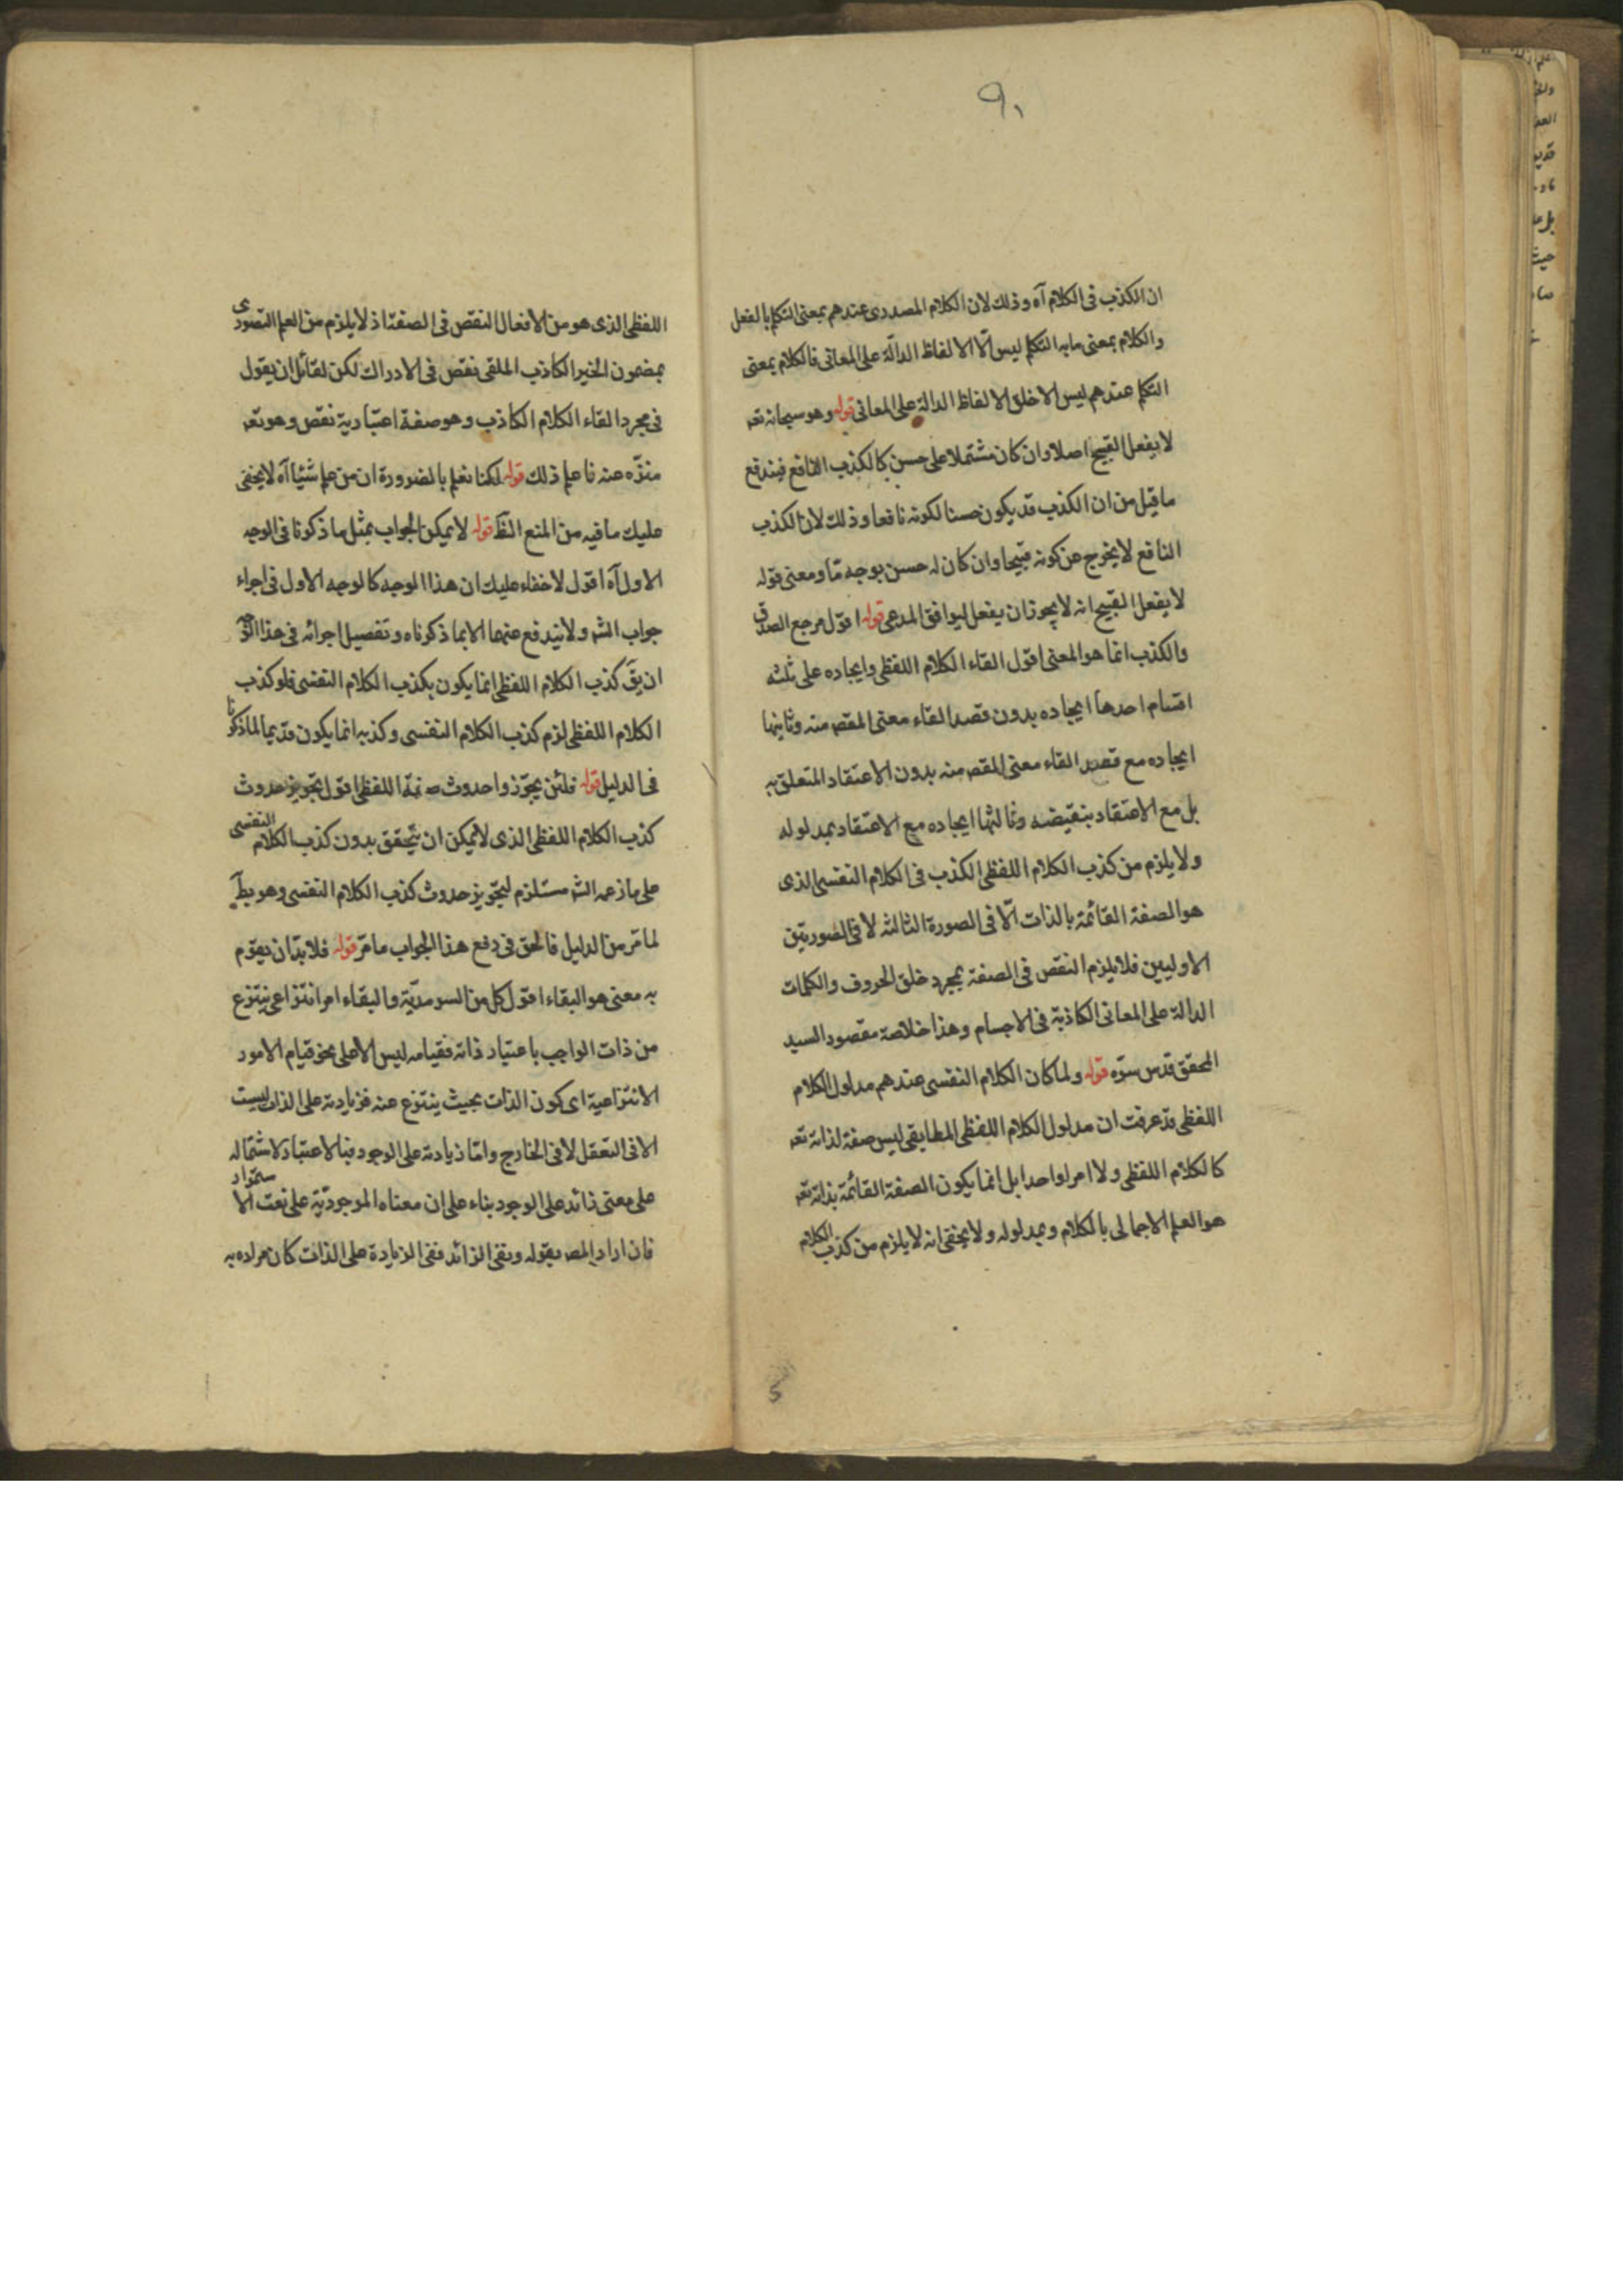 ٩١
ان الكذب فى الكلام آه وذلك لان الكلام المصدرى عندهم بمعنى التكلم بالفعل
والكلام بمعنى ما به التكلم ليس الّا الالفاظ الدالّة على المعانى فالكلام بمعنى
التكلم عندهم ليس الا خلق الالفاظ الدالة على المعانى قوله وهو سبحانه تعه
لا يفعل القبيح اصلا وان كان مشتملا على حسن كالكذب النافع فيندفع
ما قيل من ان الكذب قد يكون حسنا لكونه نافعا وذلك لان الكذب
النافع لا يخرج عن كونه قبيحا وان كان له حسن بوجه مّا ومعنى قوله
لا يفعل القبيح انه لا يجوز ان يفعل ليوافق المدعى قوله اقول مرجع الصدق
والكذب انما هو المعنى اقول القاء الكلام اللفظى وايجاده على ثلثه
اقسام احدها ايجاده بدون قصد القاء معنى المقص منه وثانيها
ايجاده مع قصد القاء معنى المقص منه بدون الاعتقاد المتعلق به
بل مع الاعتقاد بنقيضه وثالثها ايجاده مع الاعتقاد بمدلوله
ولا يلزم من كذب الكلام اللفظى الكذب فى الكلام النفسى الذى
هو الصفة القائمة بالذات الّا فى الصورة الثالثه لا فى الصورتين
الاوليين فلا يلزم النقص فى الصفة بمجرد خلق الحروف والكلمات
الدالة على المعانى الكاذبة فى الاجسام وهذا خلاصة مقصود السيد
المحقق قدس سرّه قوله ولما كان الكلام النفسى عندهم مدلول الكلام
اللفظى قد عرفت ان مدلول الكلام اللفظى المطابقى ليس صفة لذاته تعه
كالكلام اللفظى ولا امرا واحدا بل انما يكون الصفة القائمة بذاته تعه
هو العلم الاجمالى بالكلام وبمدلوله ولا يخفى انه لا يلزم من كذب الكلام
اللفظى الذى هو من الافعال النقص فى الصفة اذ لا يلزم من العلم التصورى
بمضمون الخبر الكاذب الملقى نقص فى الادراك لكن لقائل ان يقول
فى مجرد القاء الكلام الكاذب وهو صفة اعتبارية نقص وهو تعه
منزّه عنه فاعلم ذلك قوله لكنا نعلم بالضرورة ان من علم شيئا آه لا يخفى
عليك ما فيه من المنع الظ قوله لا يمكن الجواب بمثل ما ذكرنا فى الوجه
الاول آه اقول لا خفاء عليك ان هذا الوجه كالوجه الاول فى اجراء
جواب الشه ولا يندفع عنهما الا بما ذكرناه وتفصيل اجرائه فى هذا الوجه
ان يقَ كذب الكلام اللفظى انما يكون بكذب الكلام النفسى فلو كذب
الكلام اللفظى لزم كذب الكلام النفسى وكذبه انما يكون قديما لما ذكرنا
فى الدليل قوله فلئن يجّوزوا حدوث صفة اللفظى اقول تجويز حدوث
كذب الكلام اللفظى الذى لا يمكن ان يتحقق بدون كذب الكلام النفسى
على ما زعمه الشه مستلزم لتجويز حدوث كذب الكلام النفسى وهو بطَ
لما مّر من الدليل فالحق فى دفع هذا الجواب ما مّر قوله فلا بدّ ان يقوم
به معنى هو البقاء اقول كل من السرمديّة والبقاء امر انتزاعى ينتزع
من ذات الواجب باعتبار ذاته فقيامه ليس الا على نحو قيام الامور
الانتزاعية اى كون الذات بحيث ينتزع عنه فزيادته على الذات ليست
الا فى التعقل لا فى الخارج وامّا زيادته على الوجود فبالاعتبار لاشتماله
على معنى زائد على الوجود بناء على ان معناه الموجوديّة على نعت الاستمرار
فان اراد المصه بقوله ونفى الزائد نفى الزيادة على الذات كان مراده به